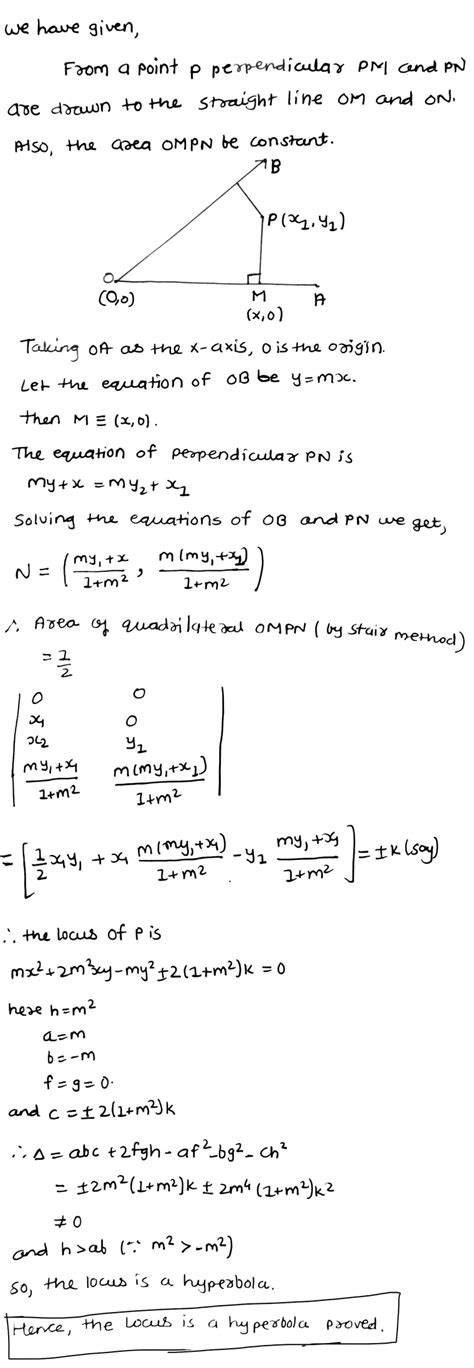 we have given,
From a point p perpendicular PM and PN
are drawn to the straight line OM and ON.
Also, the area OMPN be constant.
B
P(x₁, y₁)
O
(0,0)
M
A
(x,0)
Taking OA as the x-axis, O is the origin.
Let the equation of OB be y=mx.
then M ≡ (x,0).
The equation of perpendicular PN is
my+x = my₂+x₁
Solving the equations of OB and PN we get,
N = ( (my₁+x)/(1+m²) , m(my₁+x₁)/(1+m²) )
∴ Area of quadrilateral OMPN (by stair method)
= 1/2
| 0 0 |
| x₁ 0 |
| x₂ y₁ |
| (my₁+x₁)/(1+m²) m(my₁+x₁)/(1+m²) |
= [ 1/2 x₁y₁ + x₁ m(my₁+x₁)/(1+m²) - y₁ (my₁+x₁)/(1+m²) ] = ±k (say)
∴ the locus of P is
mx²+2m²xy-my²±2(1+m²)k = 0
here h=m²
a=m
b=-m
f=g=0.
and c = ±2(1+m²)k
∴ Δ = abc + 2fgh - af² - bg² - ch²
= ±2m²(1+m²)k ± 2m⁴(1+m²)k²
≠ 0
and h>ab (∵ m² > -m²)
so, the locus is a hyperbola.
Hence, the locus is a hyperbola proved.